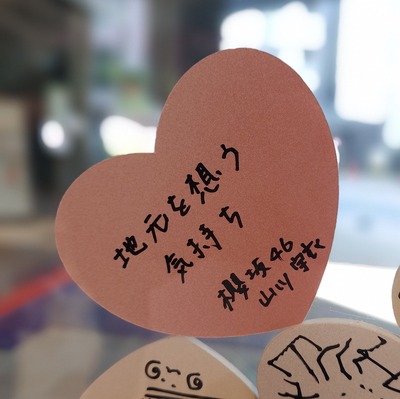 地元を想う
気持ち
櫻坂46
山川宇衣